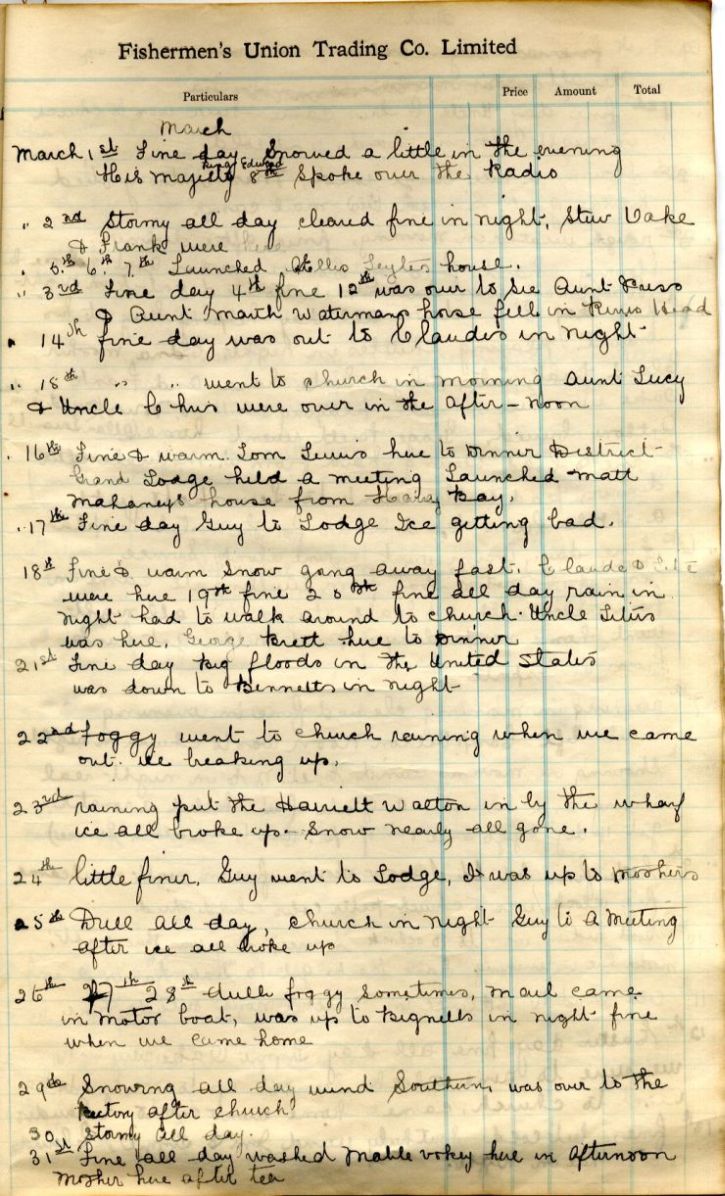 Fishermen's Union Trading Co. Limited
Particulars Price Amount Total
March
March 1st Fine day Snowed a little in the evening
King Edward
His Majesty 8th Spoke over the Radio
" 2nd Stormy all day cleared fine in night. Stew Vake
& Frank were here
" 5th 6th 7th Launched house.
" 3rd Fine day 4th fine 12th was over to see Aunt
& Aunt Marth Watermans horse fell in Head
" 14th fine day was out to Claudes in night
" 18th " " went to church in morning Aunt Lucy
& Uncle Chris were over in the after-noon
" 16th Fine & warm. Tom Lewis here to Dinner District
Grand Lodge held a meeting Launched Matt
Mahaney's house from Bay.
" 17th Fine day Guy to Lodge Ice getting bad.
18th Fine & warm Snow gong away fast. Claude &
were here 19th fine 20th fine all day rain in
night had to walk around to church. Uncle Titus
was here. George Brett here to Dinner
21st Fine day Big floods in the United States
was down to Bennetts in night
22nd Foggy went to church raining when we came
out. ice breaking up.
23rd raining put the Harriett Walton in by the wharf
ice all broke up. Snow nearly all gone.
24th little finer. Guy went to Lodge, I was up to Moshers
25th Dull all day, church in night Guy to a Meeting
after ice all broke up
26th 27th 28th dull foggy sometimes, mail came
in motor boat, was up to Bignells in night fine
when we came home
29th Snowing all day wind Southern, was over to the
Rectory after church
30 Stormy all day.
31st Fine all day washed Mable Vokey here in Afternoon
Mosher here after tea